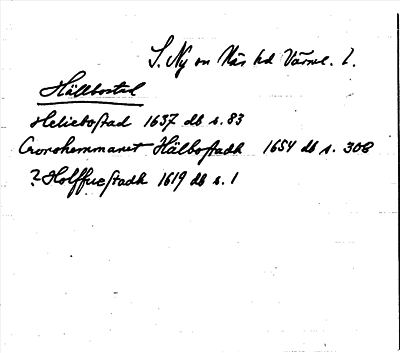 S. Ny sn Näs hd Värml. l.
Hällbostad
Heliebostad 1637 db s. 83
Cronohemmanet Hälbostadh 1654 db s. 308
? Holffuestadh 1619 db s. 1